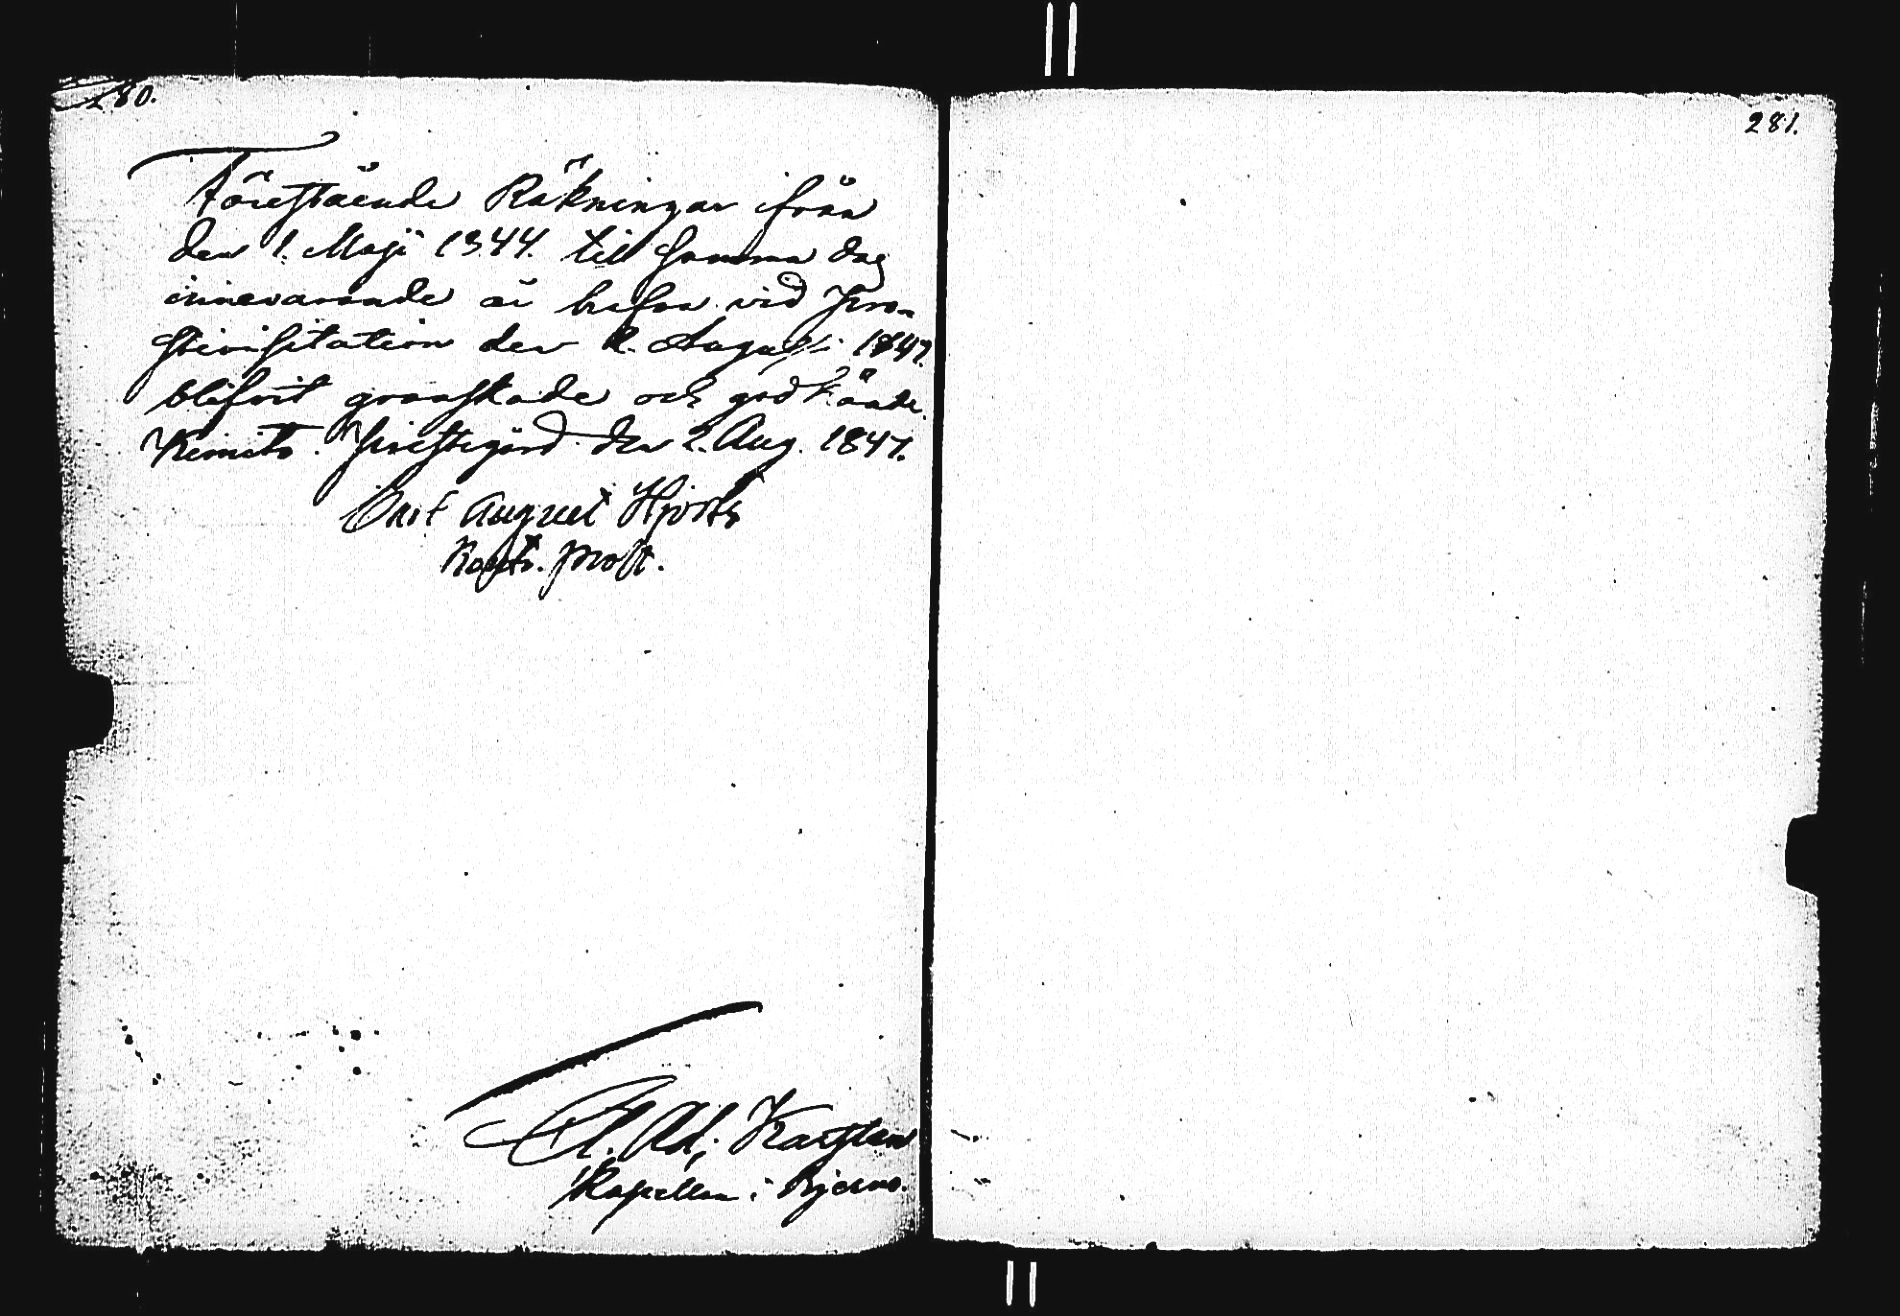 280.
Förestående Räkningar ifrån
den 1. Maji 1844. till samma dag
innevarande år hafva vid Pro-
stvisitation den 2. Augusti 1847.
blifvit granskade och godkände.
Kimito Prestegård den 2. Aug. 1847.
August Hjorth
Kont. prost.
Ad. Karsten
Kapellan i Bjerno.
281.